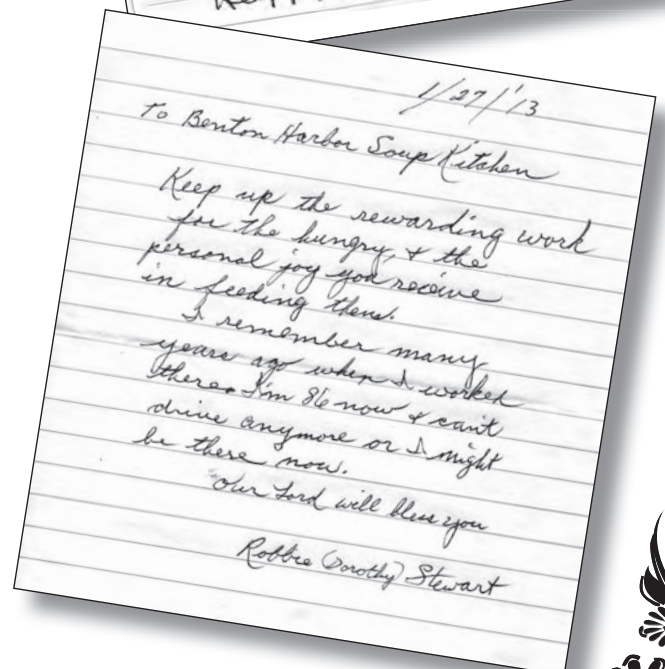 1/27/'13
To Benton Harbor Soup Kitchen
Keep up the rewarding work
for the hungry, & the
personal joy you receive
in feeding them.
I remember many
years ago when I worked
there. I'm 86 now & can't
drive anymore or I might
be there now.
Our Lord will bless you
Robbie (Dorothy) Stewart